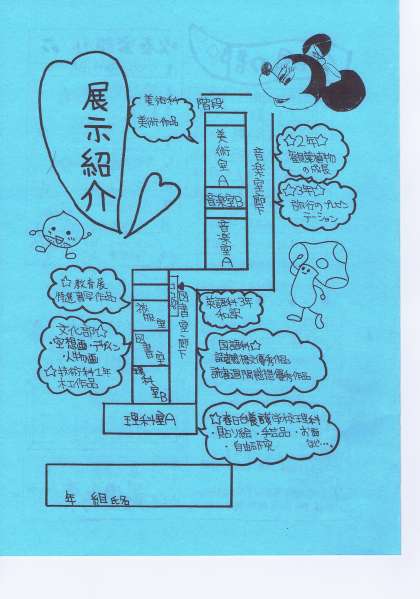 展示紹介
美術科
美術作品
階段
美術室A
音楽室B
音楽室A
音楽室廊下
☆2年☆
観葉植物
の成長
☆3年☆
旅行のプレゼン
テーション
☆教育展
特選習字作品
英語科3年
和訳
文化部☆
・空想画・デザイン
・人物画
☆技術科1年
木工作品
国語科☆
読書感想文優秀作品
読書週間標語優秀作品
図書室
図書室廊下
理科室B
理科室A
☆春日台養護学校
・貼り絵・手芸品・お面
・自由研究
など…
年 組 氏名